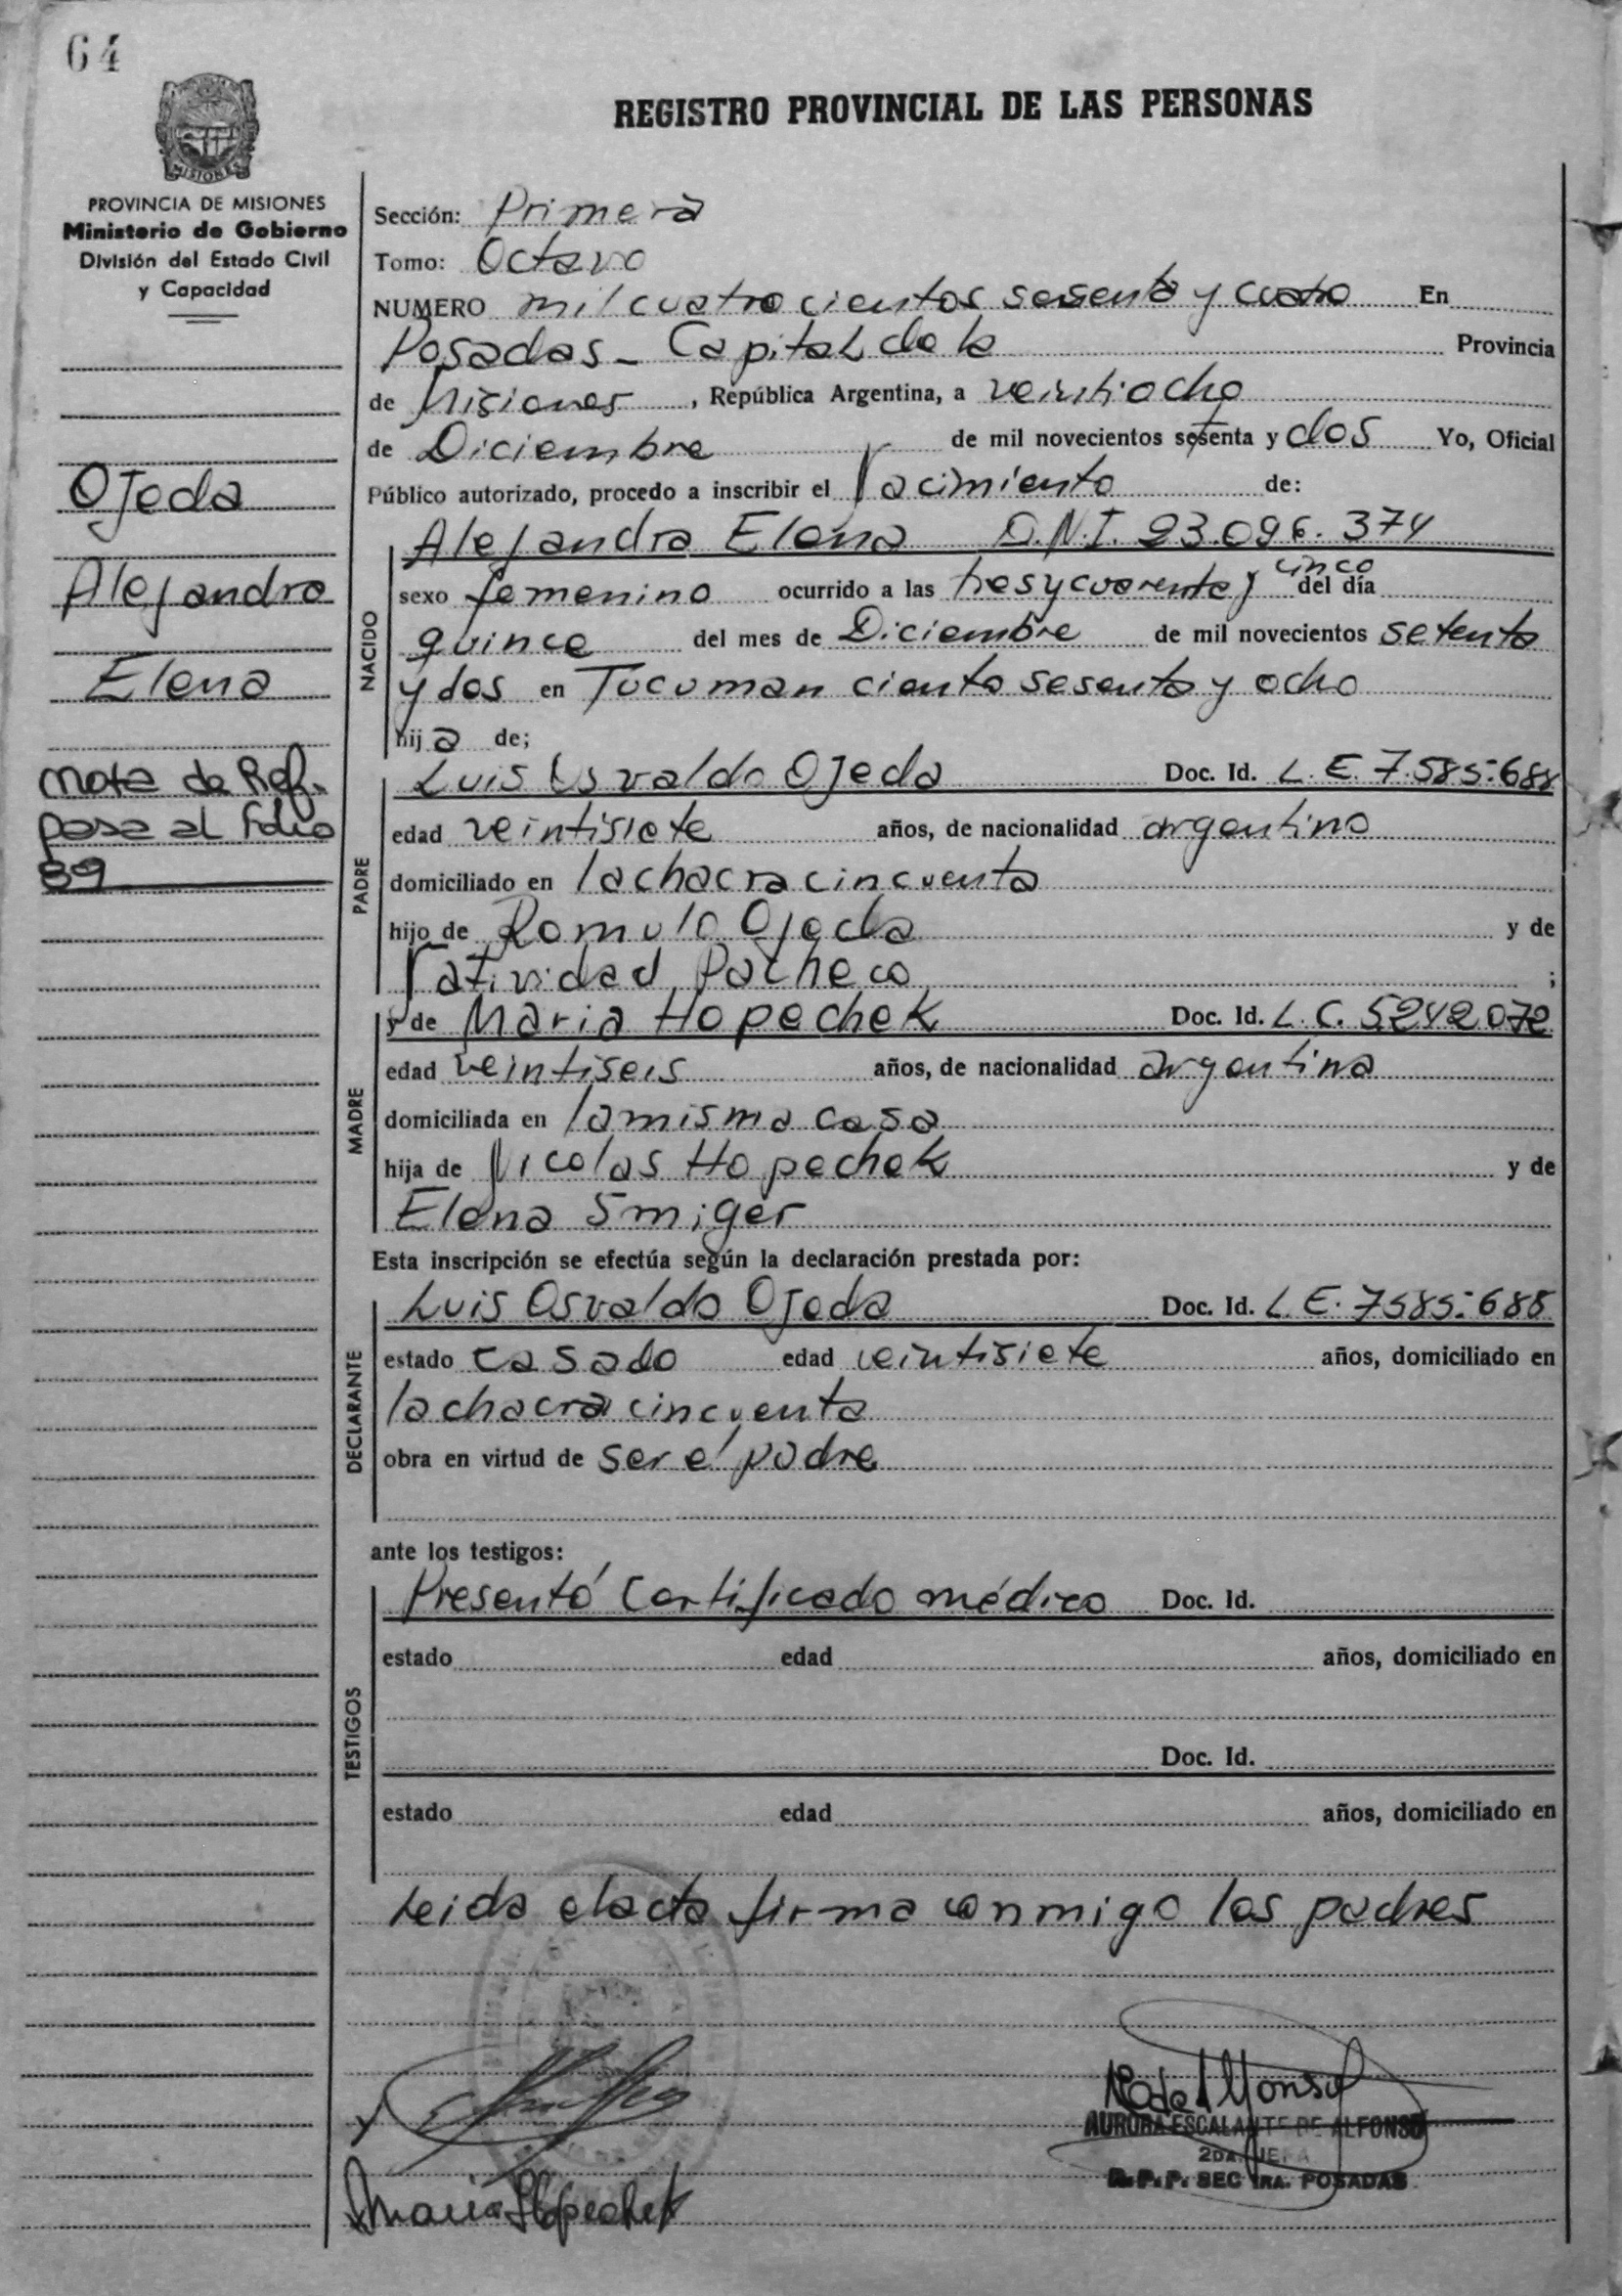 64
REGISTRO PROVINCIAL DE LAS PERSONAS
MISIONES
PROVINCIA DE MISIONES
Ministerio de Gobierno
División del Estado Civil
y Capacidad
Ojeda
Alejandra
Elena
Nota de Ref.
pasa al folio
89
Sección: Primera
Tomo: Octavo
NUMERO mil cuatrocientos sesenta y cuatro En
Posadas - Capital de la Provincia
de Misiones, República Argentina, a veintiocho
de Diciembre de mil novecientos setenta y dos Yo, Oficial
Público autorizado, procedo a inscribir el Nacimiento de:
NACIDO
Alejandra Elena D.N.I. 23.096.374
sexo femenino ocurrido a las tres y cuarenta y cinco del día
quince del mes de Diciembre de mil novecientos setenta
y dos en Tucuman ciento sesenta y ocho
hija de;
PADRE
Luis Osvaldo Ojeda Doc. Id. L.E. 7.585.688
edad veintisiete años, de nacionalidad argentino
domiciliado en la chacra cincuenta
hijo de Romulo Ojeda y de
Natividad Pacheco ;
MADRE
y de Maria Hopechek Doc. Id. L.C. 5242072
edad veintiseis años, de nacionalidad argentina
domiciliada en la misma casa
hija de Nicolas Hopechek y de
Elena Smiger
Esta inscripción se efectúa según la declaración prestada por:
DECLARANTE
Luis Osvaldo Ojeda Doc. Id. L.E. 7585.688
estado casado edad veintisiete años, domiciliado en
la chacra cincuenta
obra en virtud de ser el padre
ante los testigos:
TESTIGOS
Presentó Certificado médico Doc. Id.
estado edad años, domiciliado en
Doc. Id.
estado edad años, domiciliado en
Leida el acta firma conmigo los padres
AURORA ESCALANTE DE ALFONSO
2DA. JEFA
R.P.P. SEC 1RA. POSADAS
Maria Hopechek